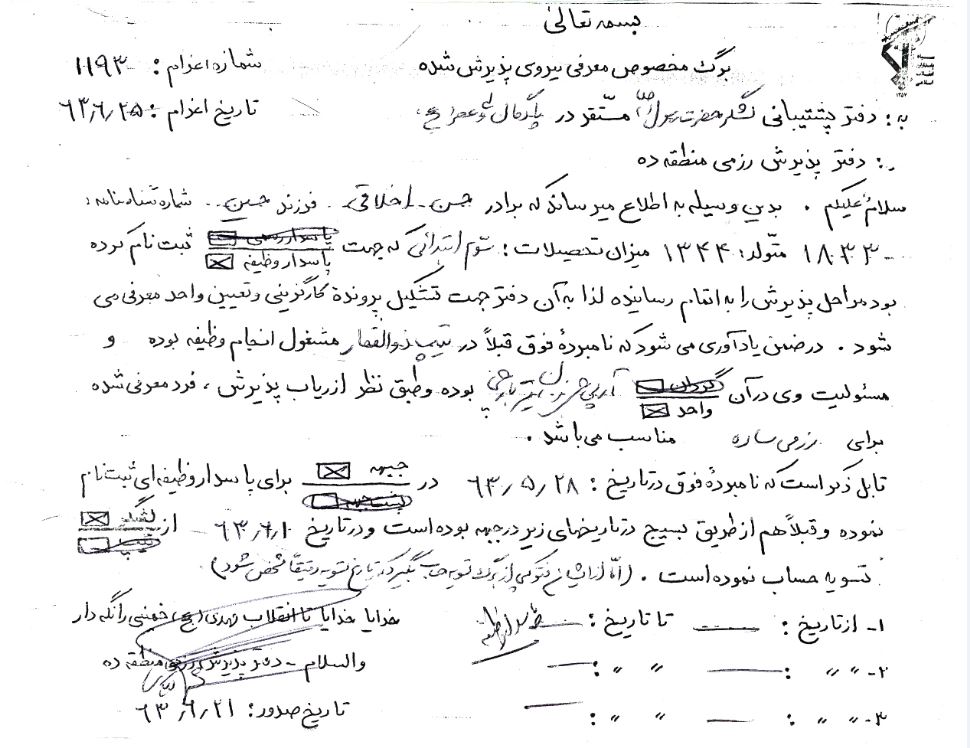 بسمه تعالی
برگ مخصوص معرفی نیروی پذیرش شده
شماره اعزام: ۱۱۹۳۰
به: دفتر پشتیبانی لشکر حضرت رسول (ص) مستقر در
تاریخ اعزام: ۶۳٫۶٫۲۵
از: دفتر پذیرش رزمی منطقه ده
سلام علیکم . بدین وسیله به اطلاع میرساند که برادر حسن اخلاقی فرزند حسین شماره شناسنامه:
۱۸۰۳۳ متولد: ۱۳۴۴ میزان تحصیلات: سوم ابتدائی که جهت پاسدار رسمی پاسدار وظیفه ثبت نام کرده
بود مراحل پذیرش را به اتمام رسانیده لذا به آن دفتر جهت تشکیل پروندهٔ کارگزینی و تعیین واحد معرفی می
شود . در ضمن یادآوری می شود که نامبردهٔ فوق قبلاً در تیپ ذوالفقار مشغول انجام وظیفه بوده و
مسئولیت وی در آن گردان واحد آرپی جی زن بوده و طبق نظر ارزیاب پذیرش ، فرد معرفی شده
برای رزمی ساده مناسب می باشد .
قابل ذکر است که نامبردهٔ فوق در تاریخ: ۶۳٫۵٫۲۸ در جبهه پشت جبهه برای پاسدار وظیفه ای ثبت نام
نموده و قبلاً هم از طریق بسیج در تاریخهای زیر در جبهه بوده است و در تاریخ ۶۳٫۶٫۱۰ از لشگر تیپ
تسویه حساب نموده است . (اما از ایشان فتوکپی از برگ تسویه حساب بگیرید که تاریخ تسویه دقیقاً مشخص شود)
۱- از تاریخ: تا تاریخ:
خدایا خدایا تا انقلاب مهدی (عج) خمینی را نگه دار
۲- " " : " " :
والسلام - دفتر پذیرش رزمی منطقه ده
۳- " " : " " :
تاریخ صدور: ۶۳٫۶٫۲۱